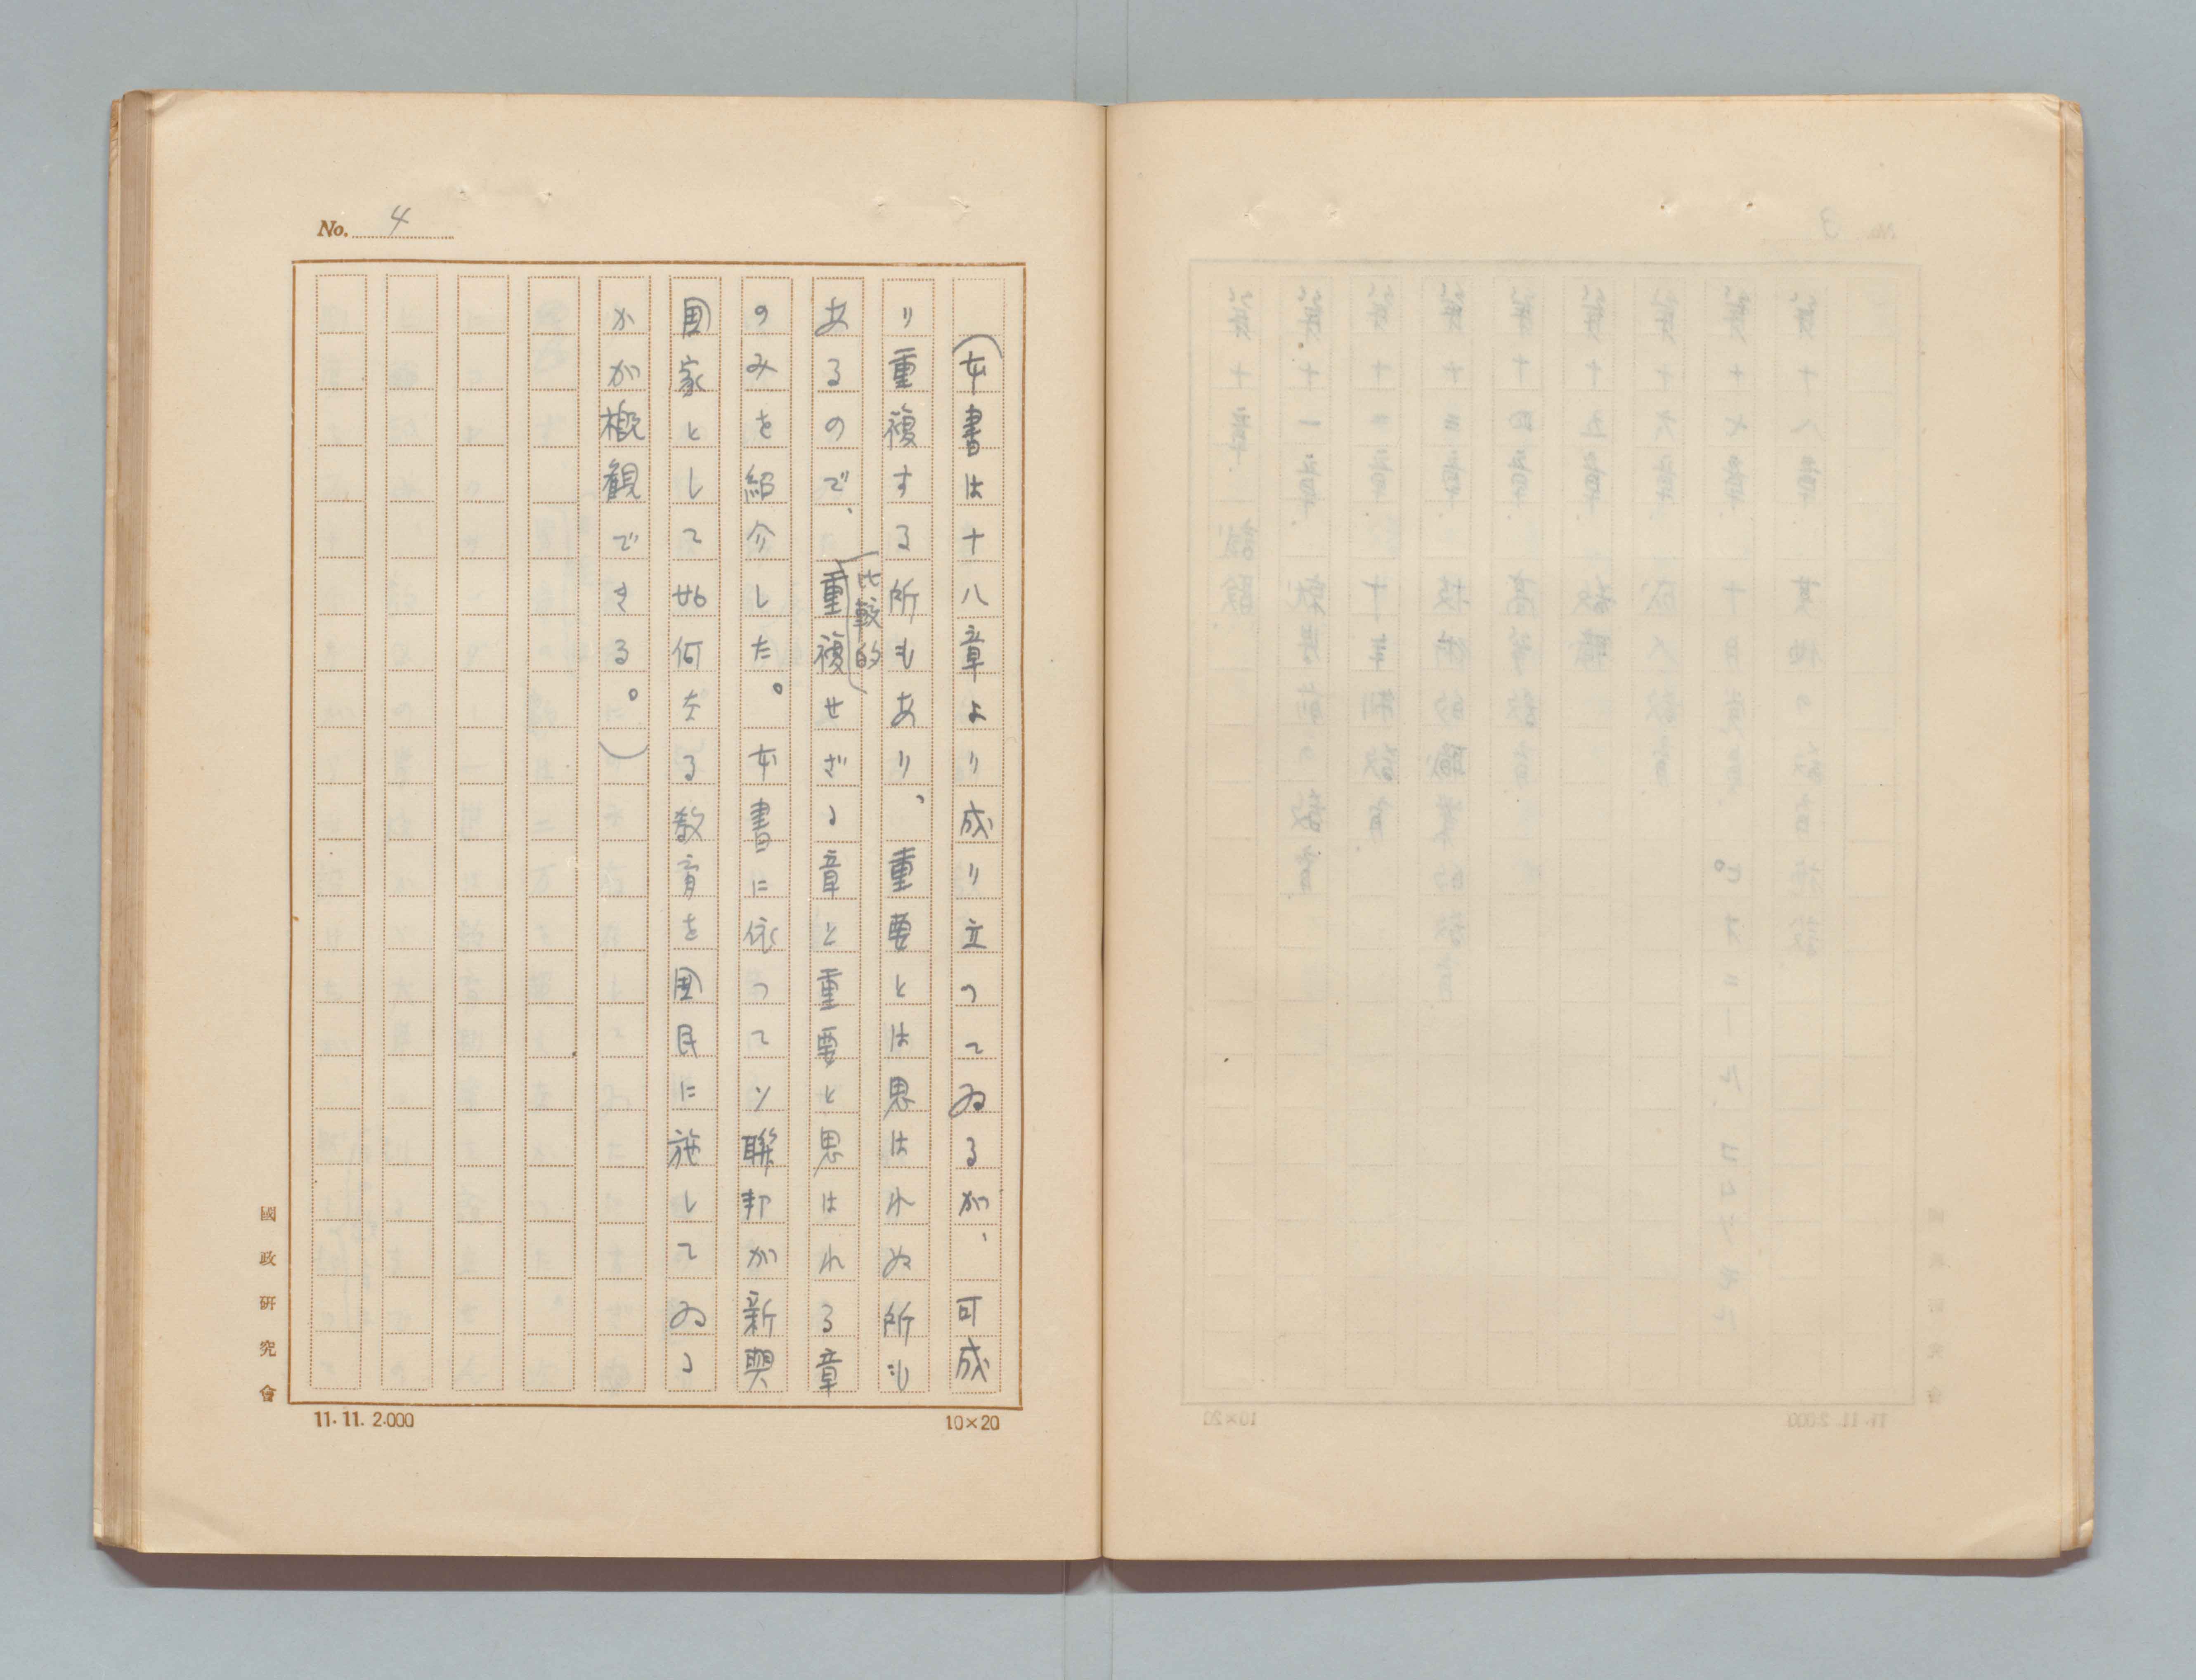 No. 4
（本書は十八章より成り立つてゐるが、可成
り重複する所もあり、重要とは思はれぬ所も
比較的
あるので、重複せざる章と重要と思はれる章
のみを紹介した。　本書に依つてソ聯邦が新興
国家として如何なる教育を国民に施してゐる
かが概観できる。）
國政研究會
11.11.2.000
10×20